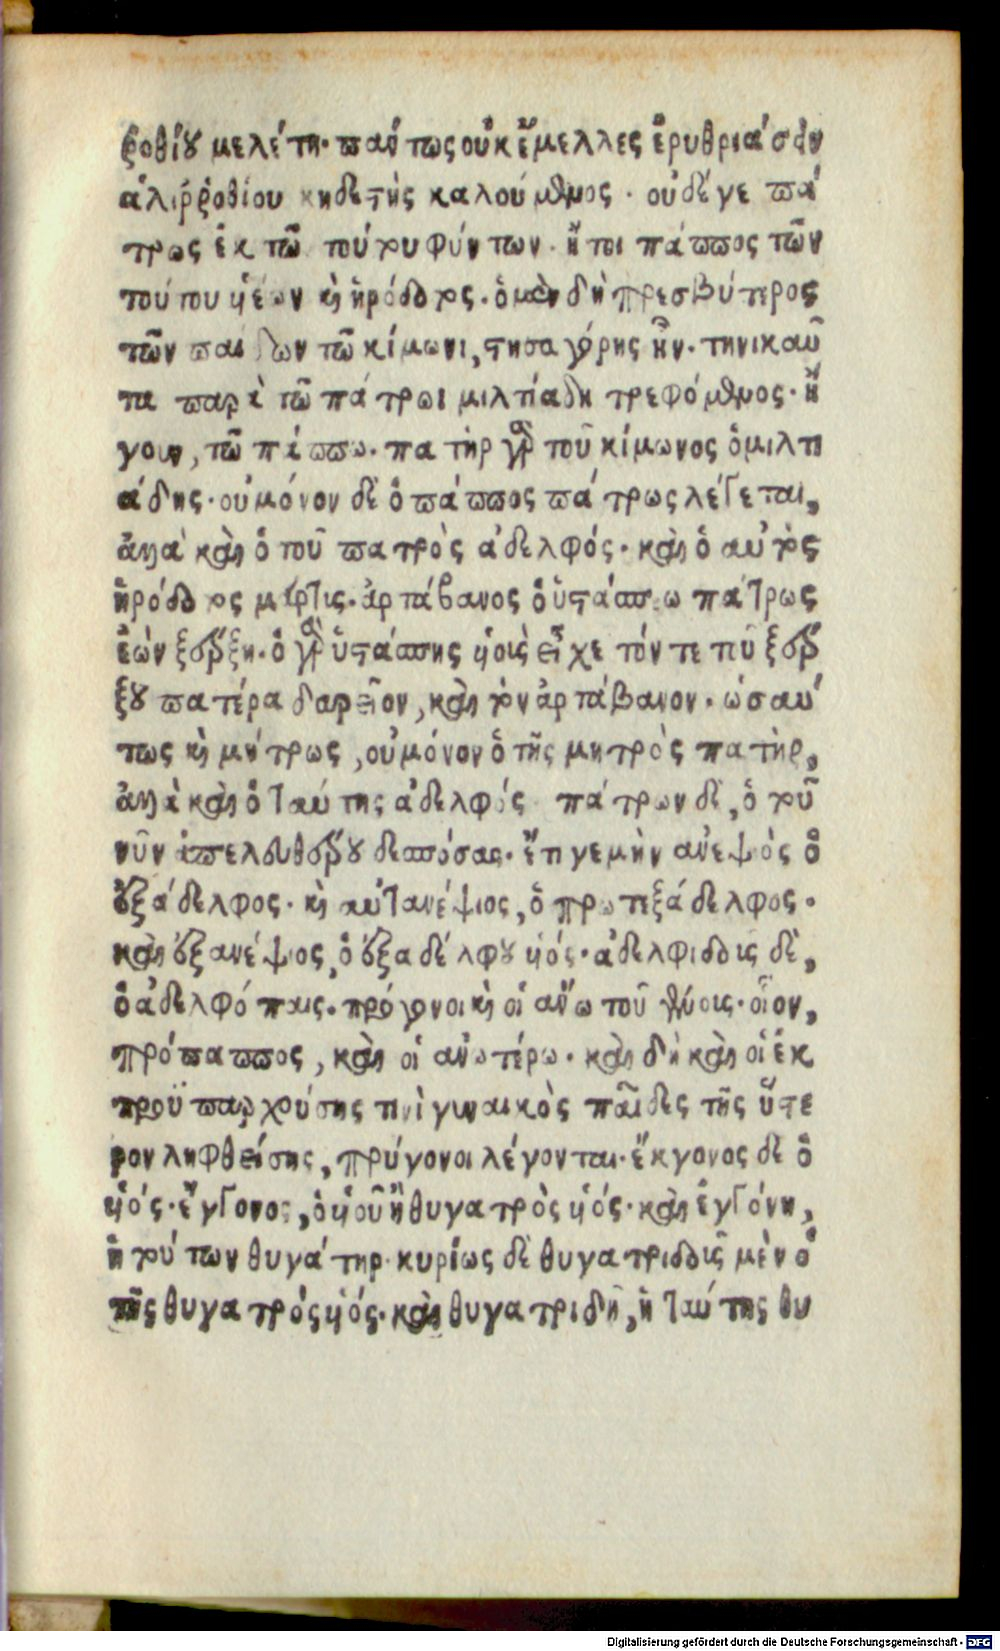 ῤοθίου μελέτη· πάντως οὐκ ἔμελλες ἐρυθριάσειν
ἁλιῤῥοθίου κηδεστὴς καλούμενος· οὐδέ γε πά
τρως ἐκ τῶν τούτου φύντων· ἤτοι πάππος τῶν
τούτου υἱέων καὶ ἡρόδοτος· ὁ μὲν δὴ πρεσβύτερος
τῶν παίδων τῶ κίμωνι, στησαγόρης ἦν· τηνικαῦ
τα παρὰ τῶ πάτρωι μιλτιάδη τρεφόμενος· ἤ
γουν, τῶ πάππω· πατὴρ γὰρ τοῦ κίμωνος ὁ μιλτι
άδης· οὐ μόνον δὲ ὁ πάππος πάτρως λέγεται,
ἀλλὰ καὶ ὁ τοῦ πατρὸς ἀδελφός· καὶ ὁ αὐτὸς
ἡρόδοτος μάρτις· ἀρτάβανος ὁ ὑστάσπεω πάτρως
ἐὼν ξέρξη· ὁ γὰρ ὑστάσπης υἱοὺς εἶχε τόν τε τοῦ ξέρ
ξου πατέρα δαρεῖον, καὶ τὸν ἀρτάβανον· ὡσαύ
τως καὶ μήτρως, οὐ μόνον ὁ τῆς μητρὸς πατὴρ,
ἀλλὰ καὶ ὁ ταύτης ἀδελφός πάτρων δὲ, ὁ τοῦ
νῦν ἀπελευθέρου δεσπόσας· ἔτι γε μὴν ἀνεψιὸς ὁ
ἐξάδελφος· καὶ αὐτανέψιος, ὁ πρωτεξάδελφος·
καὶ ἐξανέψιος, ὁ ἐξαδέλφου υἱός· ἀδελφιδοῦς δὲ,
ὁ ἀδελφόπαις· πρόγονοι καὶ οἱ ἄνω τοῦ γένους· οἷον,
πρόπαππος, καὶ οἱ ἀνωτέρω· καὶ δὴ καὶ οἱ ἐκ
προϋπαρχούσης τινὶ γυναικὸς παῖδες τῆς ὕστε
ρον ληφθείσης, πρόγονοι λέγονται· ἔκγονος δὲ ὁ
υἱός· ἔγγονος, ὁ υἱοῦ ἢ θυγατρὸς υἱός· καὶ ἐγγόνη,
ἡ τούτων θυγάτηρ· κυρίως δὲ θυγατριδοῦς μὲν ὁ
τῆς θυγατρός υἱός· καὶ θυγατριδῆ, ἡ ταύτης θυ
Digitalisierung gefördert durch die Deutsche Forschungsgemeinschaft - DFG